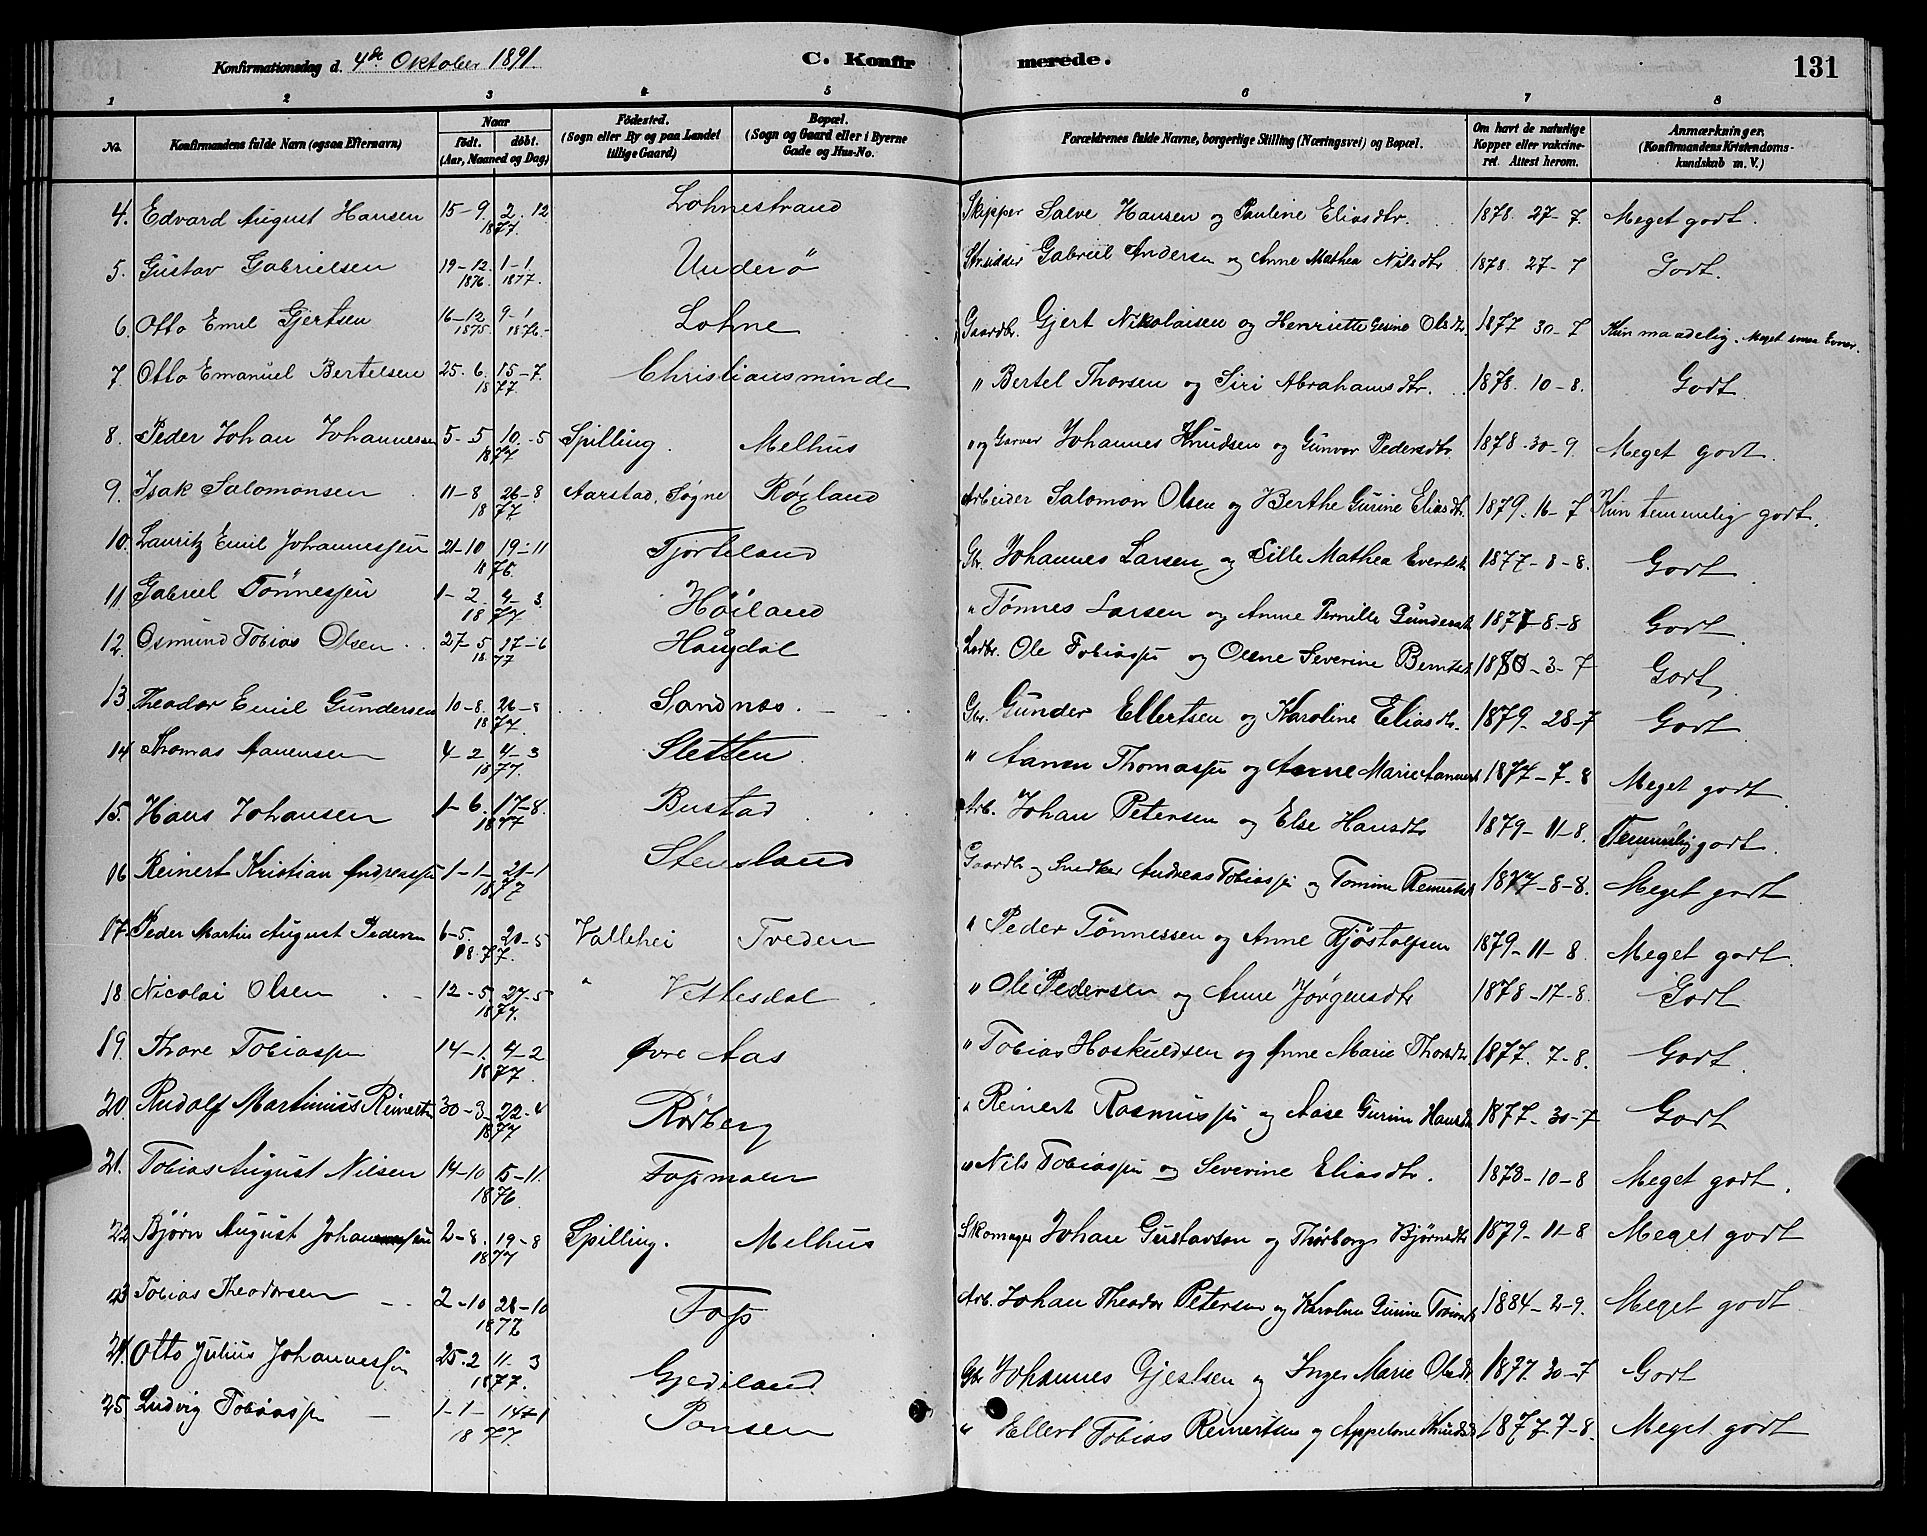 Konfirmationsdag d. 4de Oktober 1891. C. Konfirmerede. 131
1 2 3 4 5 6 7 8
No. Konfirmandens fulde Navn (ogsaa Efternavn) Naar født. døbt. (Aar, Maaned og Dag) Fødested. (Sogn eller By og paa Landet tillige Gaard) Bopæl. (Sogn og Gaard eller i Byerne Gade og Hus-No. Forældrenes fulde Navne, borgerlige Stilling (Næringsvei) og Bopæl. Om havt de naturlige Kopper eller vakcineret. Attest herom. Anmærkninger. (Konfirmandens Kristendomskundskab m. V.)
4. Edvard August Hansen 15-9. 2. 12 1877. Lohnestrand Skipper Salve Hansen og Pauline Eliasdtr. 1878. 27-7. Meget godt.
5. Gustav Gabrielsen 19-12. 1876. 1-1. 1877. Underö Strsidder Gabriel Andersen og Anne Mathea Nilsdtr 1878. 27-7 Godt.
6. Otto Emil Gjertsen 16-12 1875. 9-1 1876. Lohne Gaardbr. Gjert Nikolaisen og Henriette Gesine Olsdtr. 1877 30-7 Kun maadelig. Meget smaa Evner.
7 Otto Emanuel Bertelsen 25. 6. 15-7. 1877. Christiansminde " Bertel Thorsen og Siri Abrahamsdtr. 1878. 10-8. Godt.
8. Peder Johan Johannessen 5-5 10.-5 1877 Spilling. Melhus " og Garver Johannes Knudsen og Gunvor Pedersdtr. 1878. 30-9. Meget godt.
9. Isak Salomonsen 11-8 26-8 1877. Aarstad, Søgne Røgland Arbeider Salomon Olsen og Berthe Gurine Eliasdtr. 1879. 16-7 Kun temmelig godt.
10. Lauritz Emil Johannessen 21-10 19-11 1876. Tjorteland Gbr. Johannes Larsen og Sille Mathea Evertsdt 1877-8-8. Godt
11 Gabriel Tönnessen 1-2. 4-3. 1877 Høiland " Tönnes Larsen og Anne Pernille Gundersdt 1877-8-8 Godt
12. Osmund Tobias Olsen. 27-5 17-6 1877 Haugdal Ole Tobiassen og Olene Severine Berntsdt 1880-3-7 Godt
13. Theodor Emil Gundersen 10-8. 26-8 1877. Sandnæs. Gbr. Gunder Ellertsen og Karoline Eliasdtr. 1879. 28-7 Godt
14 Thomas Aanensen 4-2 4-3 1877. Sletten " Aanen Thomassen og Anne Marie Aanensdt 1877-7-8 Meget godt
15. Hans Johansen 1-6. 17-8. 1877 Bustad Arb. Johan Petersen og Else Hansdtr 1879-11-8. Temmelig godt.
16 Reinert Kristian Andreassen 1-1- 21-1 1877 Stensland Gaardbr og Snedker Andreas Tobiassen og Tomine Reinertsdt 1877-8-8. Meget godt
17. Peder Martin August Pedersen 6-5. 20-5 1877. Vallehei Tveden " Peder Tönnessen og Anne Fjöstolfsen 1879-11-8. Meget godt.
18. Nicolai Olsen 12-5 27-5 1877. " Vettesdal " Ole Pedersen og Anne Jörgensdtr 1878-17-8. Godt
19. Thore Tobiassen 14-1. 4-2 1877. Øvre Aas " Tobias Hoskuldsen og Anne Marie Thorsdtr 1877. 7-8. Godt
20. Rudolf Martinius Reinertsen 30-3 22-4 1877 Rødberg " Reinert Rasmussen og Aase Gurine Hansdtr 1877. 30-7 Godt
21. Tobias August Nilsen 14-10 5-11. 1876. Fossmoen " Nils Tobiassen og Severine Eliasdtr. 1878-10-8 Meget godt.
22 Bjørn August Johansen 2-8. 19-8 1877 Spilling. Melhus Skomager Johan Gustavson og Thorborg Bjørnsdtr 1879-11-8 Meget godt
23 Tobias Theodorsen 2-10 28-10 1877 Foss Arb. Johan Theodor Petersen og Karoline Gurine Tobiasdt 1884-2-9. Meget godt
24. Otto Julius Johannessen 25-2 11-3 1877. Gjedeland Gbr Johannes Gjestsen og Inger Marie Olsdtr 1877. 30-7 Godt
25. Ludvig Tobiassen 1-1- 14-1 1877. " Ellert Tobias Reinertsen og Appelone Knudsdt 1877. 7-8. Meget godt